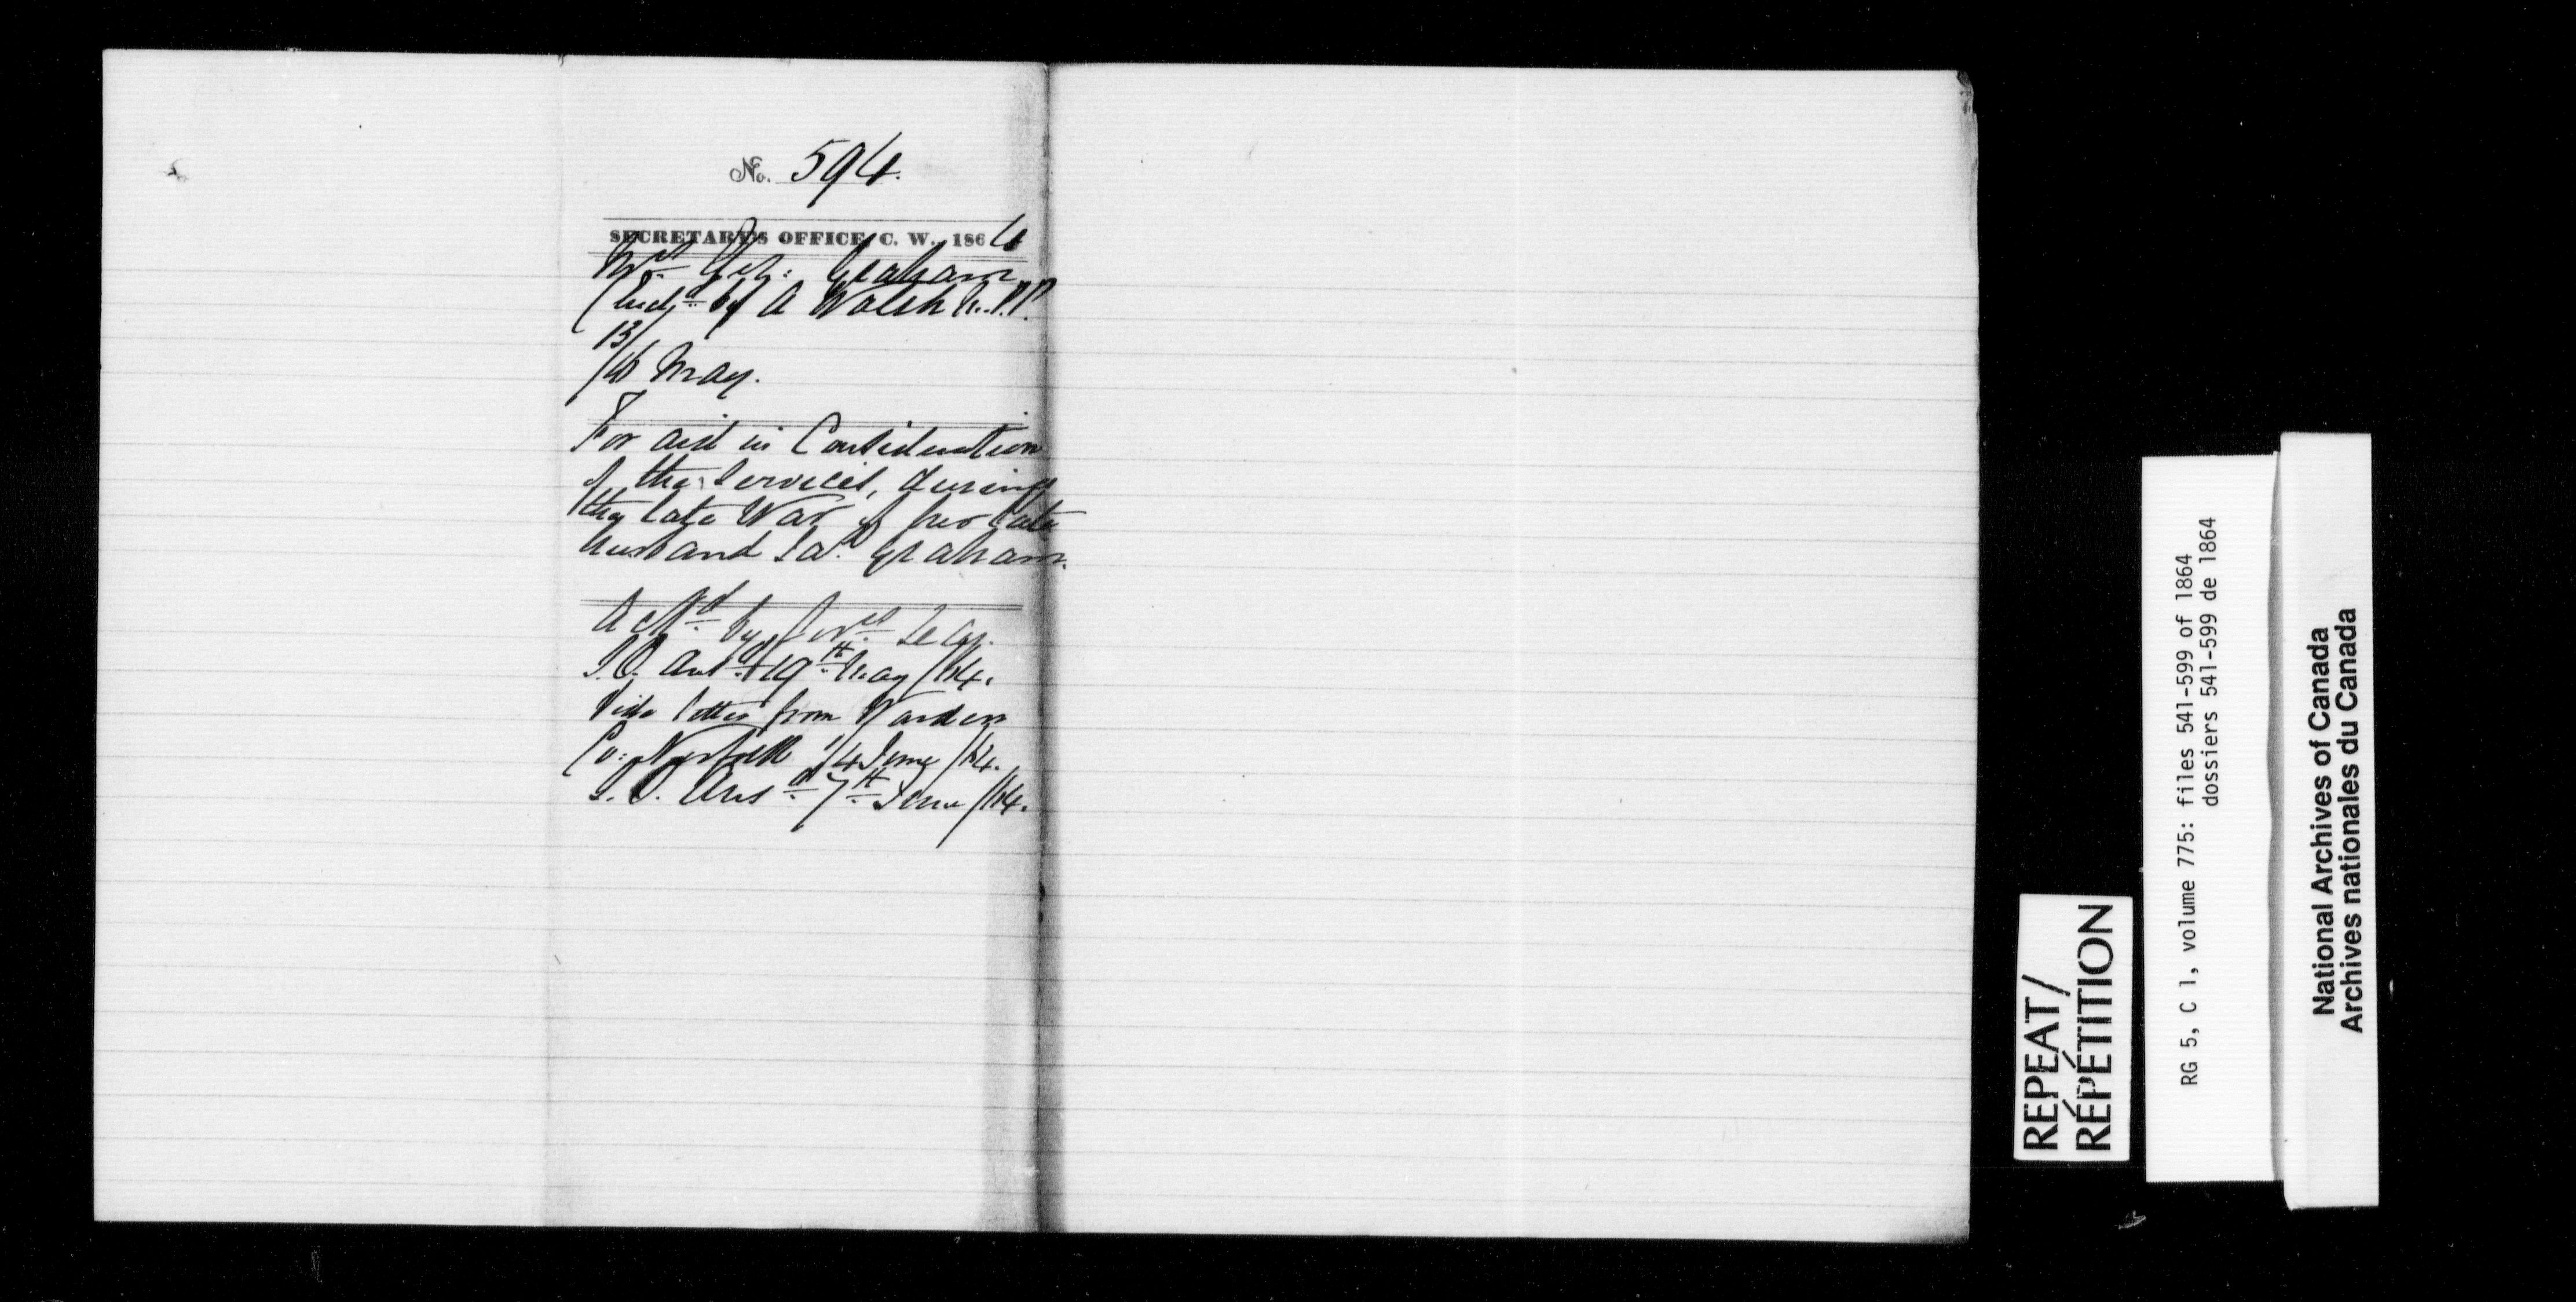 No. 594.
SECRETARY'S OFFICE, C. W., 1864
Mrs Graham
by A Walsh M.P.P.
13/
16 May.
For aid in Consideration
of the Services, during
the late War of her late
husband Jas. Graham.
Ackd by Govrs Secy.
19th May /64.
Vide letter from Warden
Co: Norfolk 1/4 June /64.
Ansd 7th June /64.
REPEAT/
RÉPÉTITION
RG 5, C 1, volume 775: files 541-599 of 1864
dossiers 541-599 de 1864
National Archives of Canada
Archives nationales du Canada